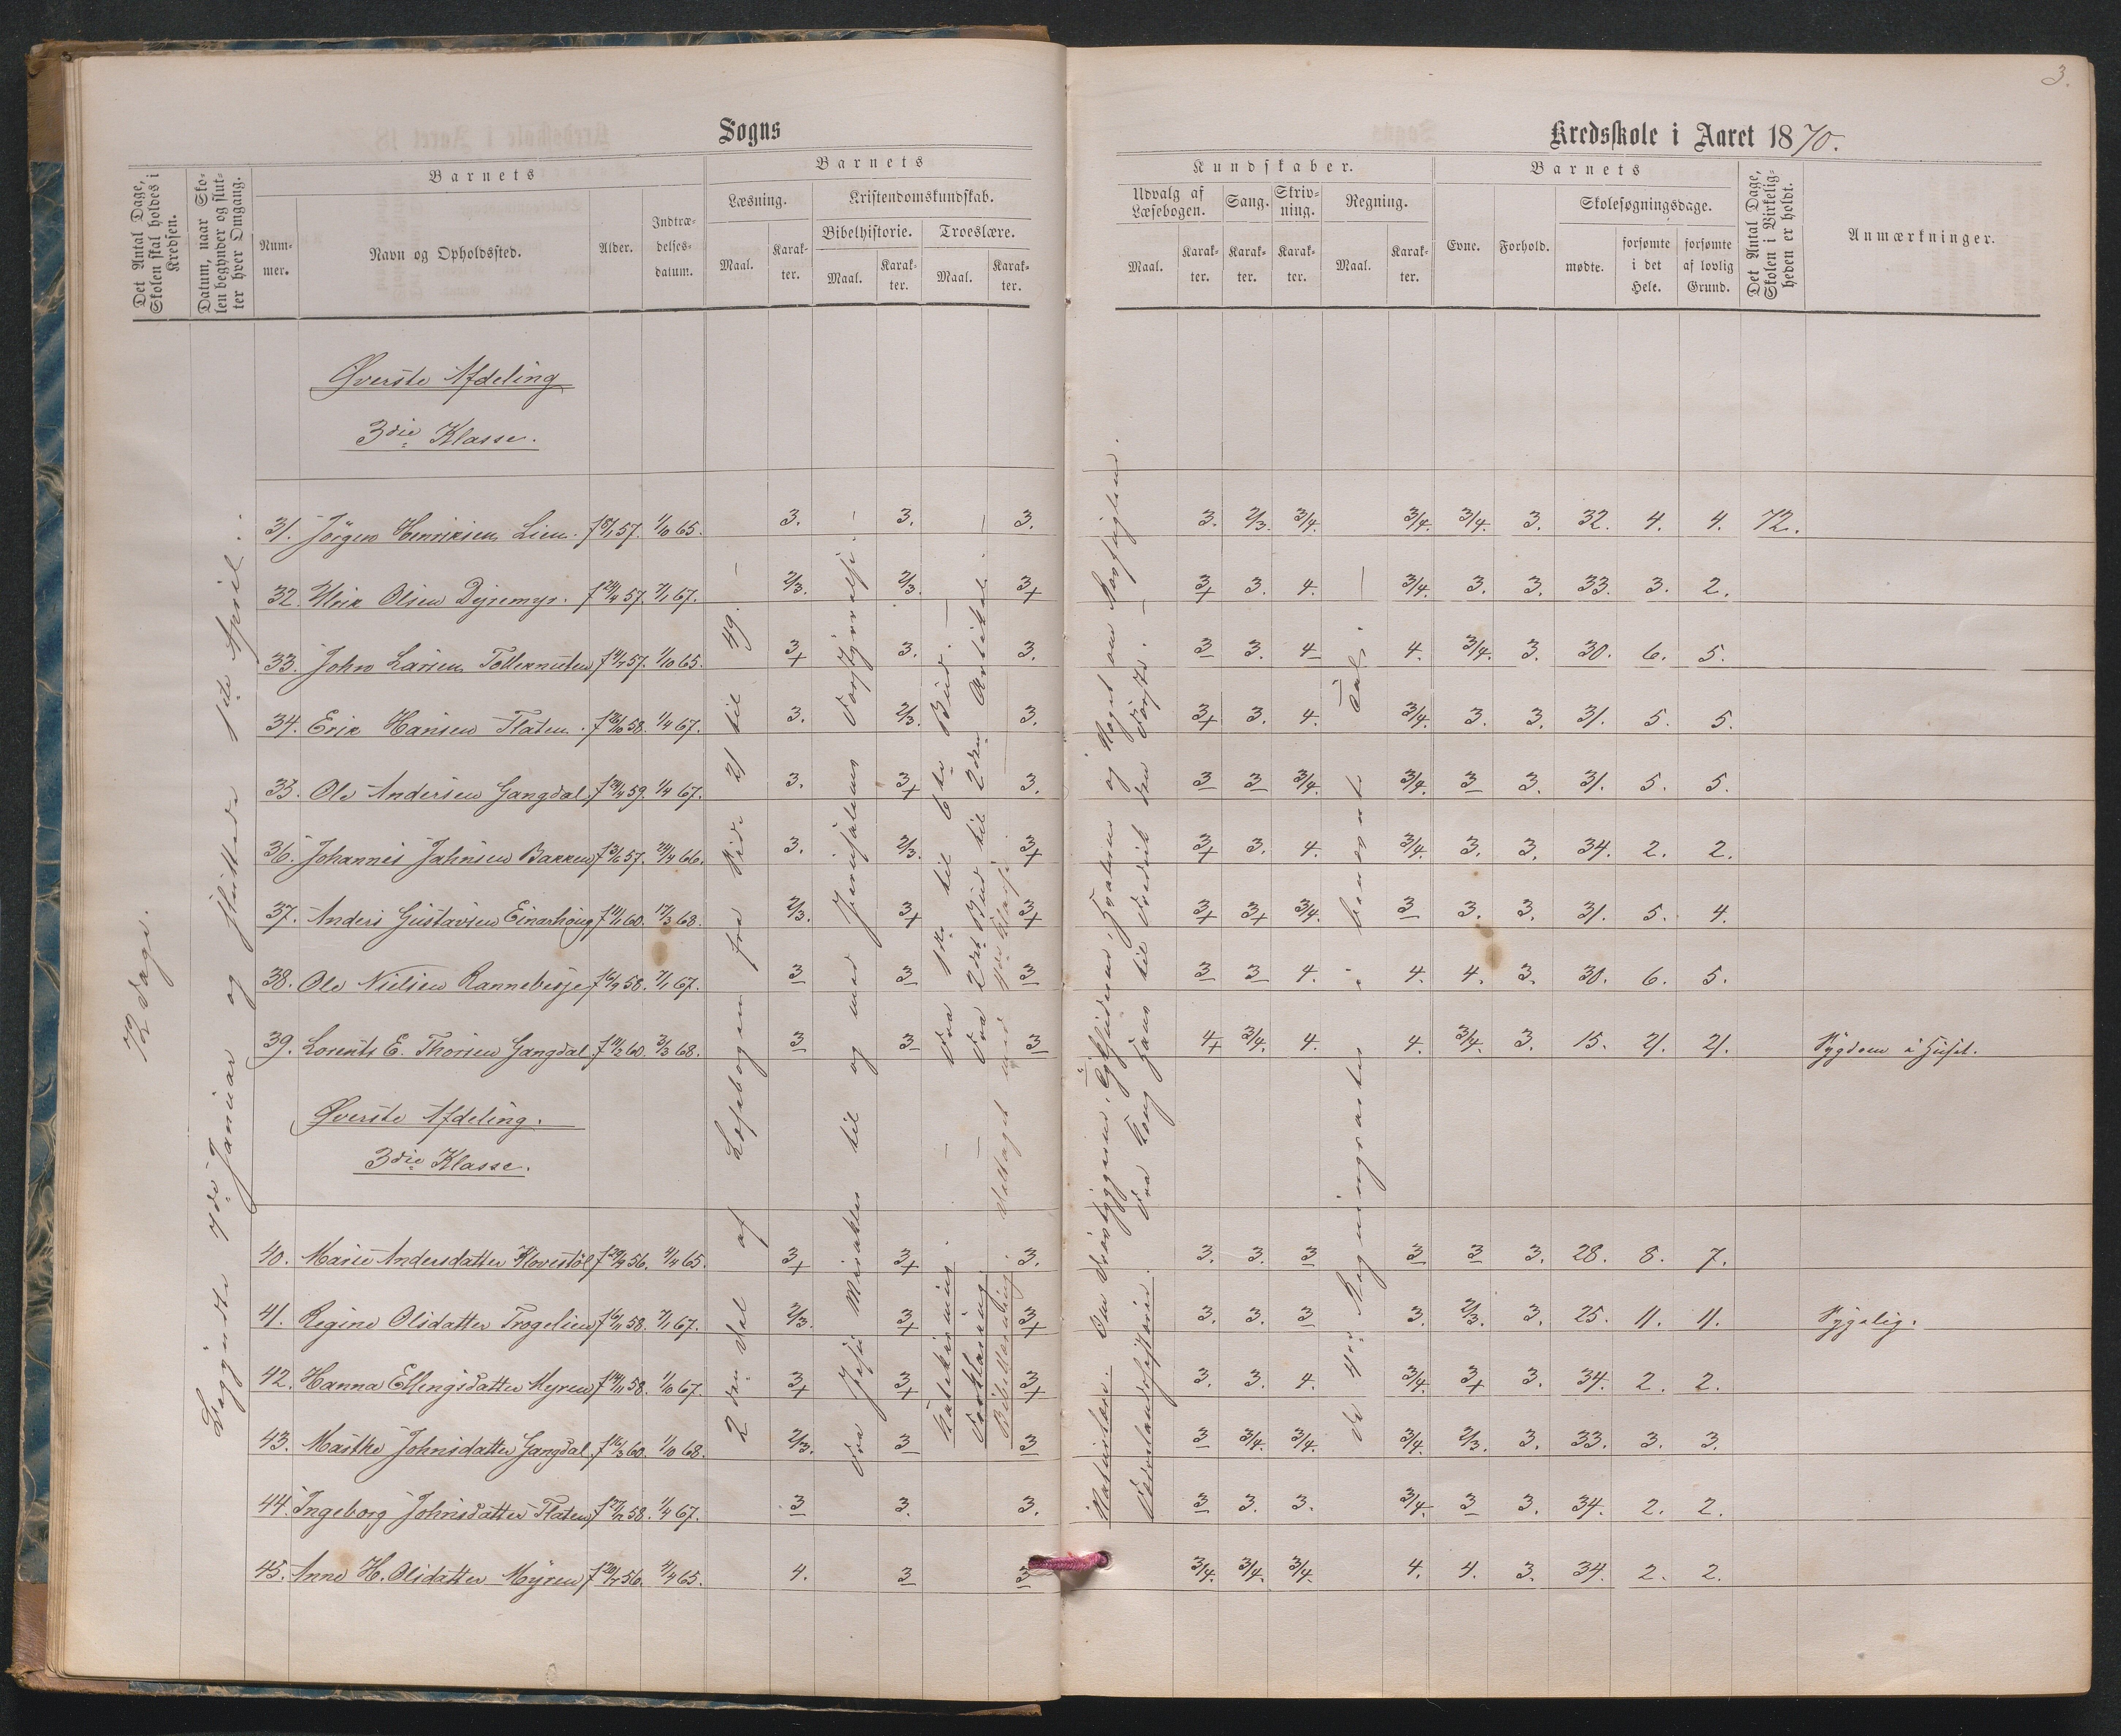 3.
Sogns
Kredsskole i Aaret 1870.
Det Antal Dage, Skolen skal holdes i Kredsen.
Datum, naar Skolen begynder og slutter hver Omgang.
Barnets
Nummer.
Navn og Opholdssted.
Alder.
Indtrædelsesdatum.
Barnets
Læsning.
Kristendomskundskab.
Bibelhistorie.
Troeslære.
Maal.
Karakter.
Maal.
Karakter.
Maal.
Karakter.
Kundskaber.
Udvalg af Læsebogen.
Sang.
Skrivning.
Regning.
Maal.
Karakter.
Karakter.
Karakter.
Maal.
Karakter.
Barnets
Evne.
Forhold.
Skolesøgningsdage.
mødte.
forsømte i det Hele.
forsømte af lovlig Grund.
Det Antal Dage, Skolen i Virkeligheden er holdt.
Anmærkninger.
72 Dage.
Begyndte 7de Januar og sluttede 1ste April.
2den Del af Læsebogen fra Side 21 til 49.
Fra Jesu Mirakler til og med Jerusalems Forstyrrelse.
Katekisming. Fra 1ste til 6te Bud.
Forklaring. Fra 2det Bud til 2den Artikel.
Bibellæsning.
de 4re Regningsarter i benævnte Tal.
Øverste Afdeling
3die Klasse.
31. Jörgen Henriksen Lien. f 8/1 57. 1/10 65. 3. 3. 3. 3. 2/3. 3/4. 3/4. 3/4. 3. 32. 4. 4. 72.
32. Ulrik Olsen Dyremyr. f 24/4 57. 7/1 67. 2/3. 2/3. 3+ 3+ 3. 4. 3/4. 3. 3. 33. 3. 2.
33. John Larsen Tollernuten 57. 1/10 65. 3+ 3. 3. 3 3. 4 4. 3/4. 3. 30. 6. 5.
34. Erik Hansen Flaten. 58. 1/4 67. 3. 2/3. 3. 3+ 3. 4. 3/4. 3. 3. 31. 5. 5.
35. Ole Andersen Gangdal. 59. 1/4 67. 3. 3+ 3. 3 3 3/4. 3/4. 3 3. 31. 5. 5.
36. Johannes Jahnsen Bakken 57. 24/4 66. 3. 2/3. 3+ 3+ 3. 4. 3/4. 3. 3. 34. 2. 2.
37. Anders Gustavsen Einarhoug 60. 17/3 68. 2/3. 3+ 3+ 3+ 3+ 3/4. 3 3. 3. 31. 5. 4.
38. Ole Nielsen 58. 7/1 67. 3 3 3 3 3 4. 4. 4. 3. 30. 6. 5.
39. Lorents E. Thorsen Gangdal. 60. 3/3 68. 3 3 3 4+ 3/4. 4. 4. 3/4. 3. 15. 21. 21. Sygdom i Huset.
Øverste Afdeling.
3die Klasse.
40. Marie Andersdatter 56. 4/4 65. 3+ 3+ 3. 3. 3. 3 3 3 3. 28. 8. 7.
41. Regine Olsdatter Trogelien 58. 7/1 67. 2/3. 3+ 3+ 3. 3. 3 3. 2/3. 3. 25. 11. 11. Sygelig.
42. Hanna Ellingsdatter Myren 58. 1/10 67. 3+ 3+ 3+ 3. 3. 4. 3/4. 3+ 3. 34. 2. 2.
43. Marthe Johnsdatter Gangdal. 60. 1/10 68. 2/3. 3 3 3 3/4. 3/4. 3/4. 2/3. 3. 33. 3. 3.
44. Ingeborg Johnsdatter Flaten 58. 1/4 67. 3 3. 3. 3 3. 3. 3/4. 3 3. 34. 2. 2.
45. Anne H. Olsdatter Myren 56. 4/4 65. 4. 3 3 3/4. 3/4. 3/4. 4. 4. 3. 34. 2. 2.